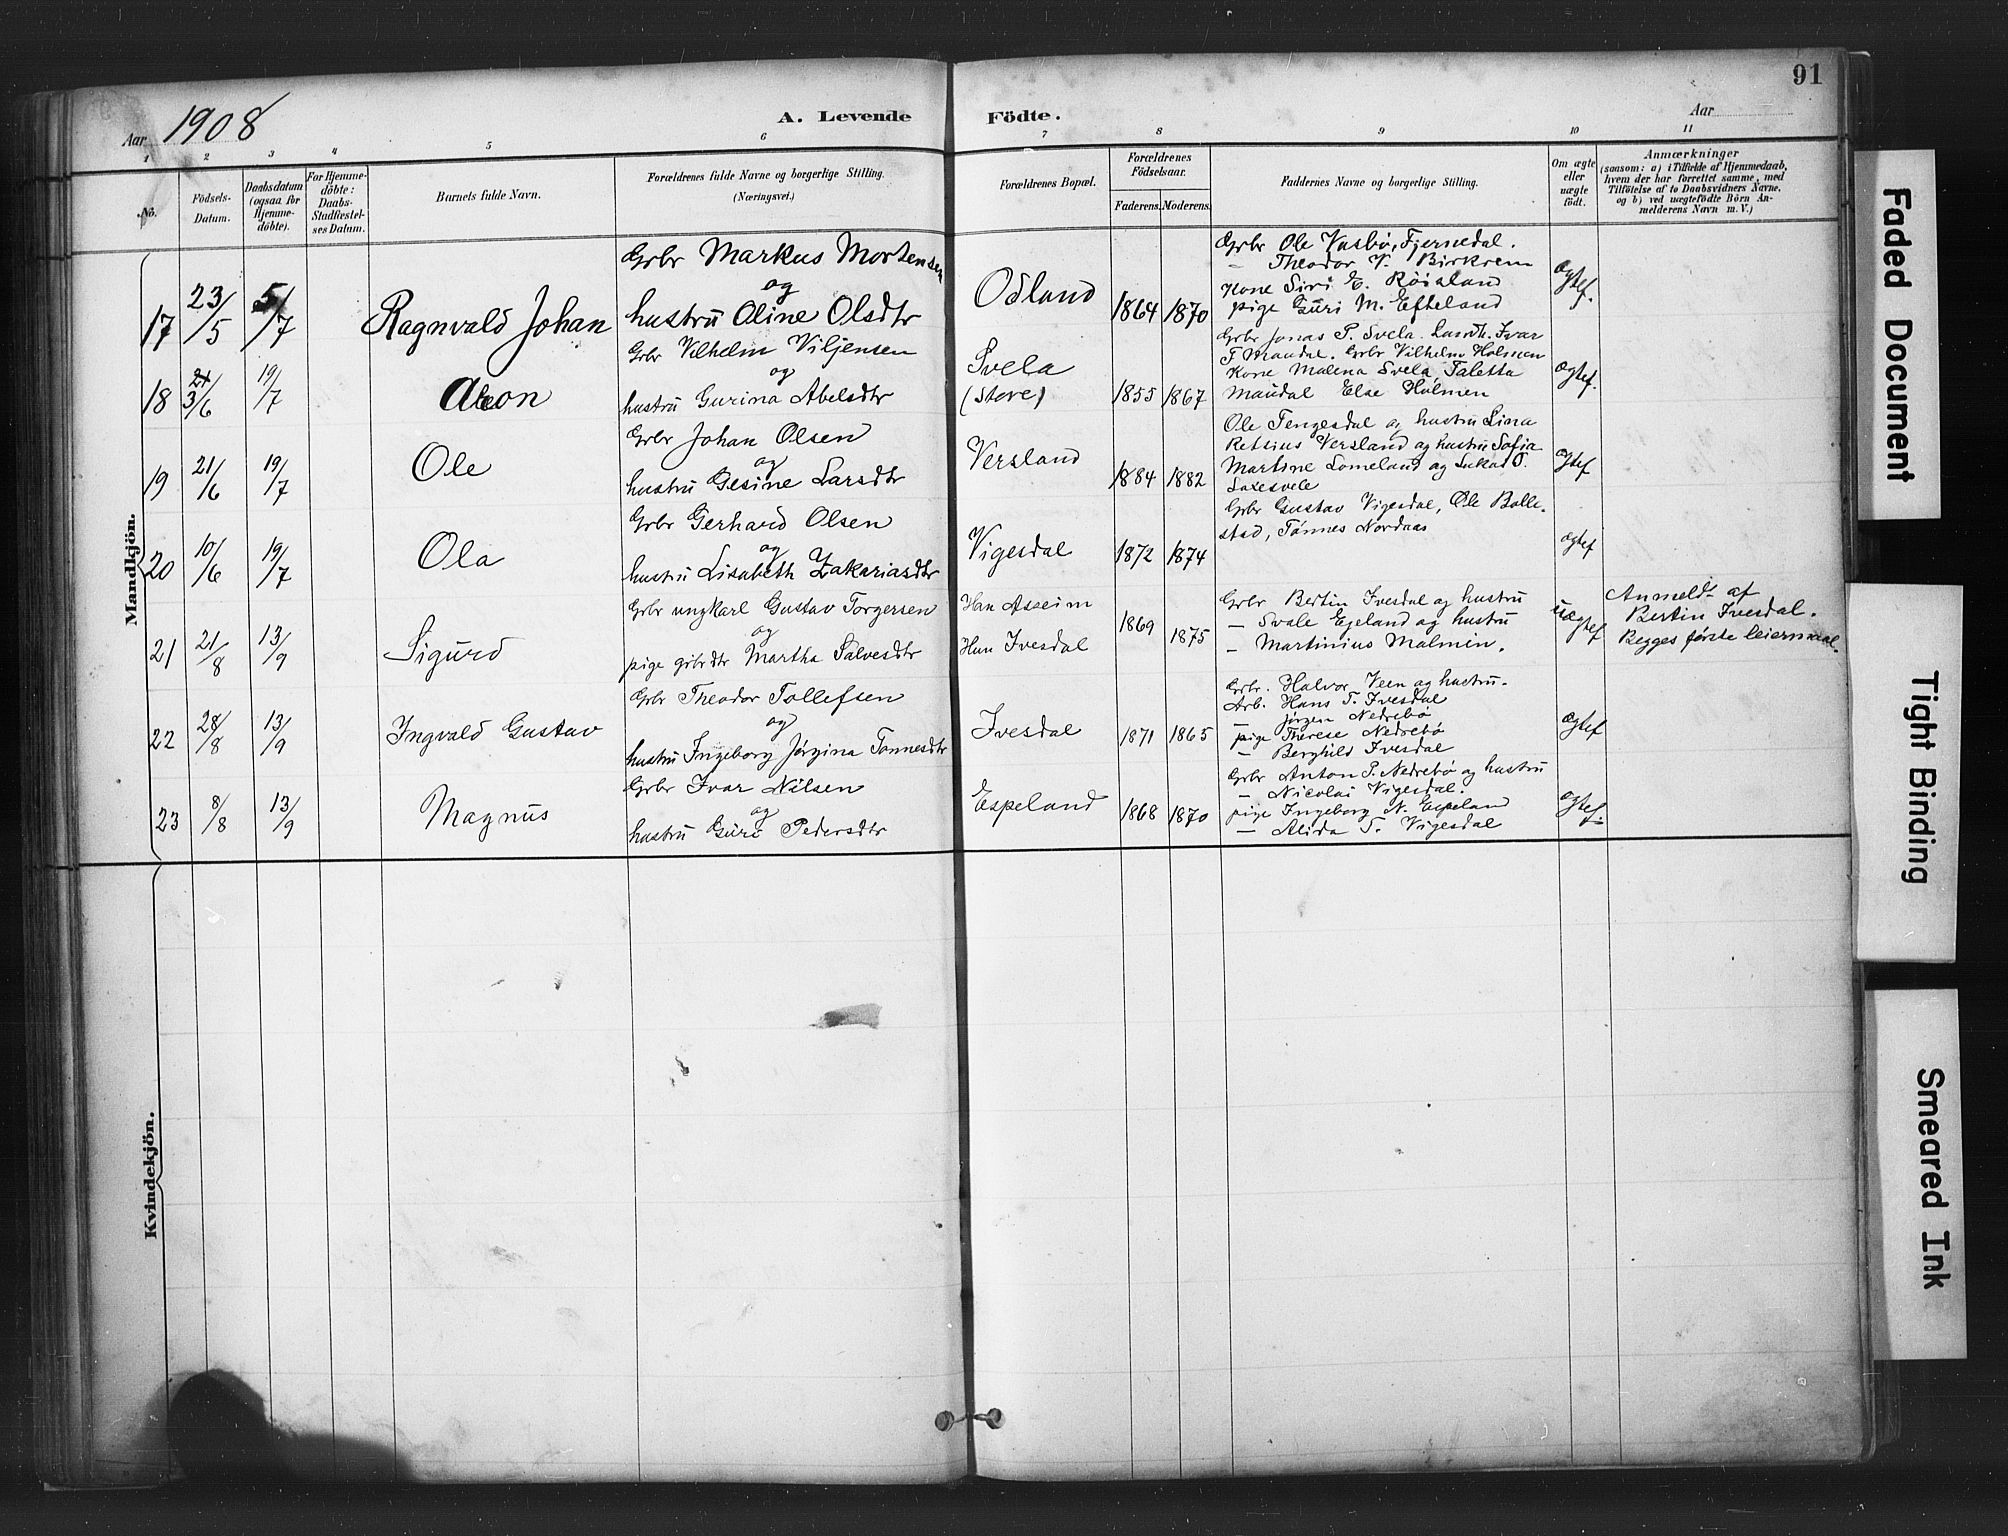 91
Aar 1908
A. Levende Födte.
Aar
1 2 3 4 5 6 7 8 9 10 11
No.
Födsels-Datum.
Daabsdatum (ogsaa for Hjemmedöbte).
For Hjemmedöbte: Daabs-Stadfæstelses Datum.
Barnets fulde Navn.
Forældrenes fulde Navne og borgerlige Stilling.
(Næringsvei.)
Forældrenes Bopæl.
Forældrenes Födselsaar.
Faderens. Moderens.
Faddernes Navne og borgerlige Stilling.
Om ægte eller uægte födt.
Anmærkninger
(saasom: a) i Tilfælde af Hjemmedaab,
hvem der har forrettet samme, med
Tilföielse af to Daabsvidners Navne,
og b) ved uægtefödte Börn Anmelderens Navn m. V.)
Mandkjön.
17 23/5 5/7 Ragnvald Johan
Grbr Markus Mortensen
og
hustru Oline Olsdtr
Odland 1864 1870
Grbr Ole Vasbø, Fjermedal.
— Theodor V. Birkrem
Kone Siri E. Røisland
pige Guri M. Efteland
ægtef.
18 3/6 19/7
Grbr Vilhelm Viljensen
og
hustru Gurina Abelsdtr
Svela
(Store)
1855 1867
Grbr Jonas P. Svela. Ivar
T Maudal. Grbr Vilhelm Holmen
Kone Malena Svela Taletta
Maudal Else Holmen
ægtef.
19 21/6 19/7 Ole
Grbr Johan Olsen
og
hustru Gesine Larsdtr
Versland 1884 1882
Ole Tengesdal og hustru Lina
Retsius Versland og hustru Sofia
Martine Lomeland og Lukas T.
Laxesvele
ægtef
20 10/6 19/7 Ola
Grbr Gerhard Olsen
og
hustru Lisabeth Zakariasdtr
Vigesdal 1872 1874
Grbr Gustav Vigesdal, Ole Bollestad, Tønnes Nordaas
ægtef
21 21/8 13/9 Sigurd
Grbr ungkarl Gustav Torgersen
og
pige grbrdtr Martha Salvesdtr
Han Asseim
Hun Ivesdal
1869 1875
Grbr Bertin Ivesdal og hustru
— Svale Egeland og hustru
— Martinius Malmin.
uægtef
Anmeldt af
Bertin Ivesdal.
Begges første leiermaal.
22 28/8 13/9 Ingvald Gustav
Grbr Theodor Tollefsen
og
hustru Ingeborg Jørgina Tønnesdtr
Ivesdal 1871 1865
Grbr. Halvor Veen og hustru.
Arb. Hans T. Ivesdal
— Jörgen Nedrebø
pige Therese Nedrebø
— Berghild Ivesdal
ægtef
23 8/8 13/9 Magnus
Grbr Ivar Nilsen
og
hustru Guro Pedersdtr
Espeland 1868 1870
Grbr Anton P. Nedrebø og hustru
— Nicolai Vigesdal.
pige Ingeborg N. Espeland
— Alida T. Vigesdal
ægtef.
Kvindekjön.
Faded Document
Tight Binding
Smeared Ink